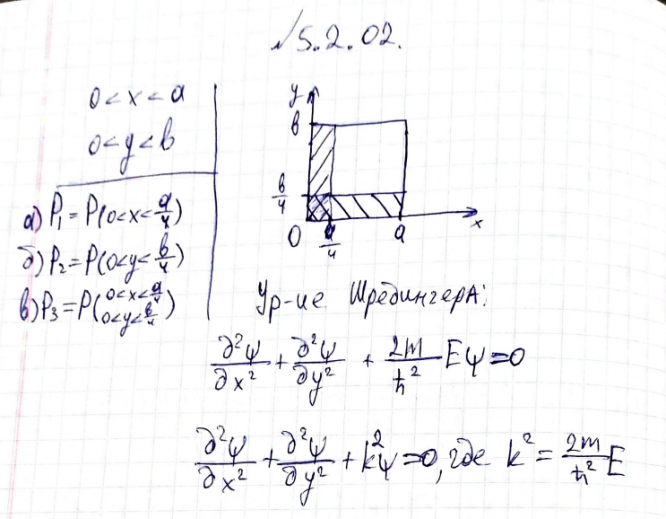 √5.2.02.
0 < x < a
0 < y < в
а) P₁ = P(0<x<a/4)
б) P₂ = P(0<y<в/4)
в) P₃ = P(0<x<a/4 0<y<в/4)
y
в
в/4
0 a/4 a x
Ур-ие Шредингера:
∂²ψ/∂x² + ∂²ψ/∂y² + 2m/ħ² Eψ = 0
∂²ψ/∂x² + ∂²ψ/∂y² + k²ψ = 0, где k² = 2m/ħ² E